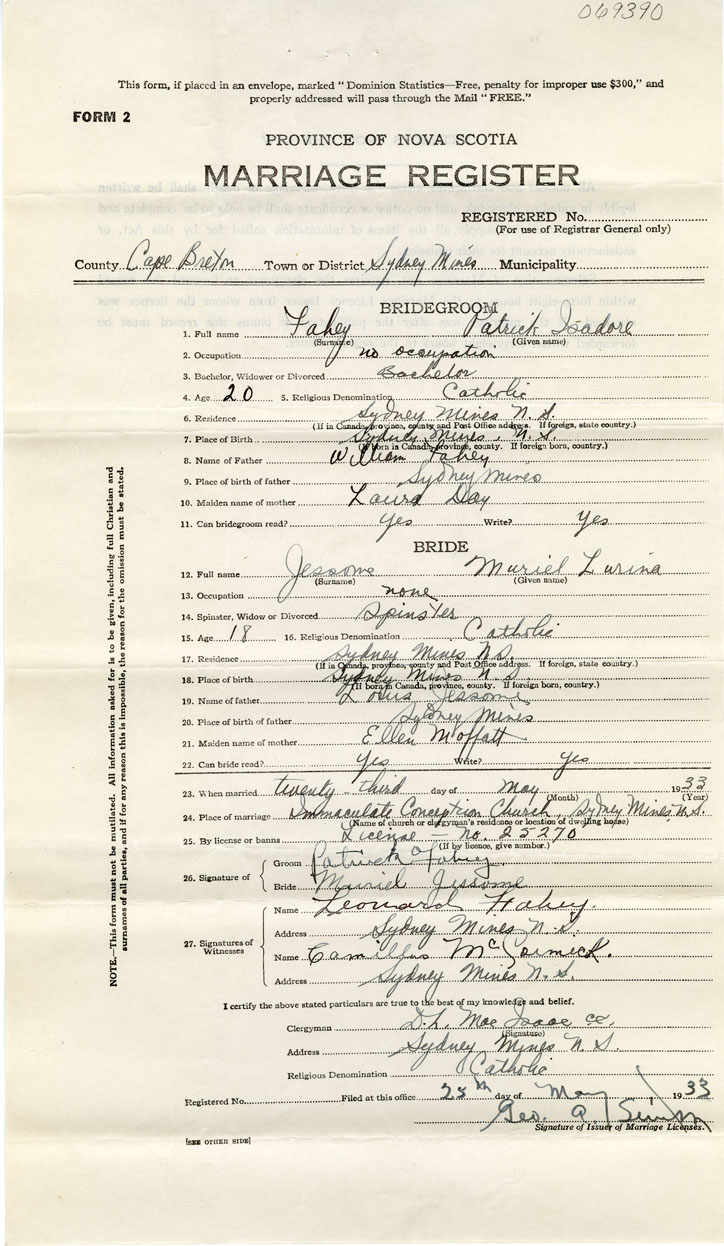 069390
This form, if placed in an envelope, marked "Dominion Statistics—Free, penalty for improper use $300," and
properly addressed will pass through the Mail "FREE."
FORM 2
PROVINCE OF NOVA SCOTIA
MARRIAGE REGISTER
REGISTERED No.
(For use of Registrar General only)
County Cape Breton Town or District Sydney Mines Municipality
BRIDEGROOM
1. Full name Fahey Patrick Isadore
(Surname) (Given name)
2. Occupation no occupation
3. Bachelor, Widower or Divorced Bachelor
4. Age 20 5. Religious Denomination Catholic
6. Residence Sydney Mines N. S.
(If in Canada, province, county and Post Office address. If foreign, state country.)
7. Place of Birth Sydney Mines, N. S.
(If born in Canada, province, county. If foreign born, country.)
8. Name of Father William Fahey
9. Place of birth of father Sydney Mines
10. Maiden name of mother Laura Day
11. Can bridegroom read? Yes Write? Yes
BRIDE
12. Full name Jessome Muriel Lurina
(Surname) (Given name)
13. Occupation none
14. Spinster, Widow or Divorced Spinster
15. Age 18 16. Religious Denomination Catholic
17. Residence Sydney Mines N S
(If in Canada, province, county and Post Office address. If foreign, state country.)
18. Place of birth Sydney Mines N. S.
(If born in Canada, province, county. If foreign born, country.)
19. Name of father Louis Jessome
20. Place of birth of father Sydney Mines
21. Maiden name of mother Ellen Moffatt
22. Can bride read? Yes Write? Yes
23. When married twenty-third day of May 1933
(Month) (Year)
24. Place of marriage Immaculate Conception Church, Sydney Mines N. S.
(Name of church or clergyman's residence or location of dwelling house)
25. By license or banns License — No. 25270
(If by licence, give number.)
26. Signature of Groom Patrick Fahey
Bride Muriel Jessome
27. Signatures of Witnesses
Name Leonard Fahey.
Address Sydney Mines N. S.
Name Camillus McCormick.
Address Sydney Mines N. S.
I certify the above stated particulars are true to the best of my knowledge and belief.
Clergyman D. L. Mac Isaac
(Signature)
Address Sydney Mines N. S.
Religious Denomination Catholic
Registered No. Filed at this office 25th day of May 1933
Geo. A.
Signature of Issuer of Marriage Licenses.
[SEE OTHER SIDE]
NOTE.—This form must not be mutilated. All information asked for is to be given, including full Christian and
surnames of all parties, and if for any reason this is impossible, the reason for the omission must be stated.